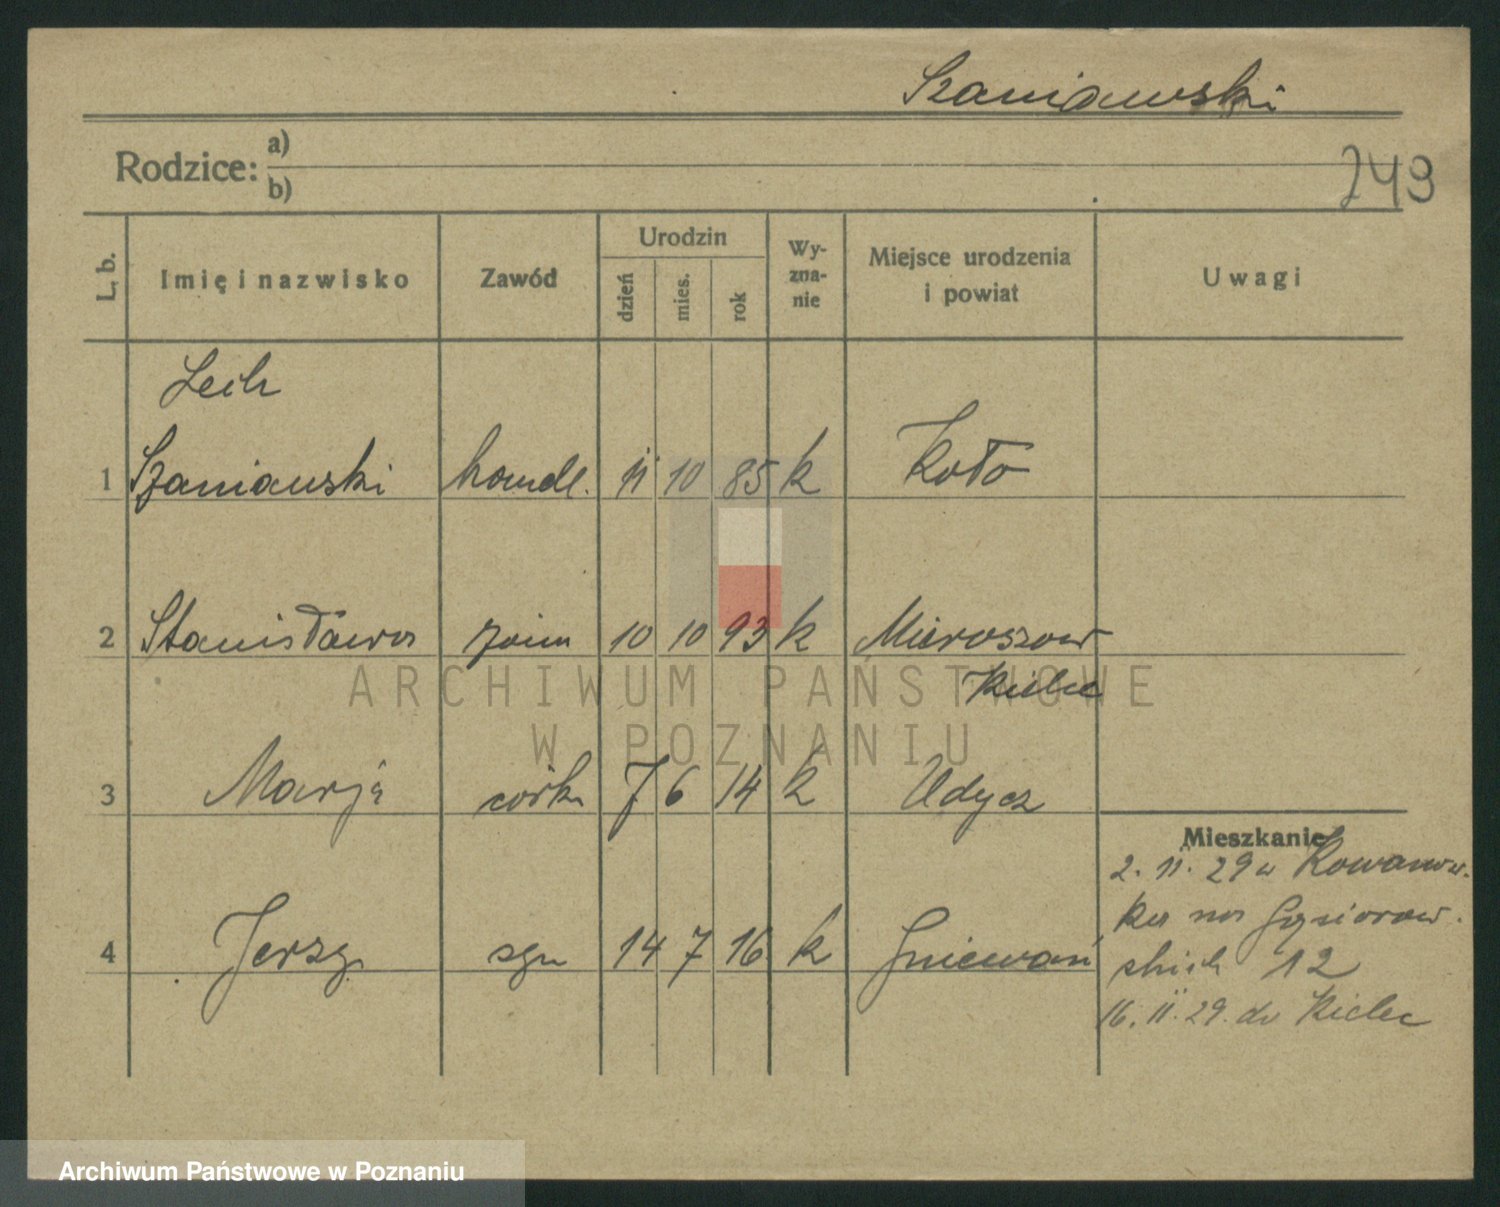 Szaniawski
Rodzice: a)
b)
249
L. b.
Imię i nazwisko
Zawód
Urodzin
dzień
mies.
rok
Wy-
zna-
nie
Miejsce urodzenia
i powiat
Uwagi
Lech
1 Szaniawski handl. 11 10 85 k Koło
2 Stanisława żona 10 10 93 k Mieroszow
Kielce
3 Marja córka 7 6 14 k Udycz
4 Jerzy syn 14 7 16 k Gniewań
Mieszkanie
2. 11. 29 w Kowanow.
ka na Gąsiorow.
skich 12
16. 11. 29. do Kielec
ARCHIWUM PAŃSTWOWE
W POZNANIU
Archiwum Państwowe w Poznaniu